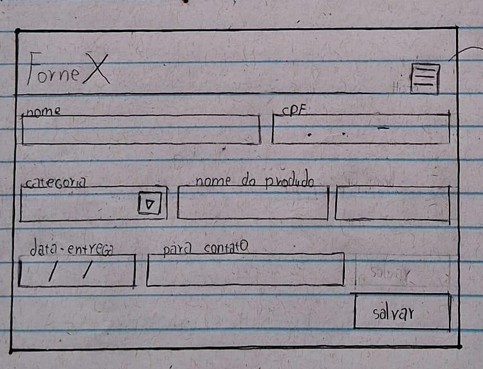 Forne X
nome
CPF
. . -
categoria
nome do produdo
data-entrega
para contato
/ /
salvar
salvar